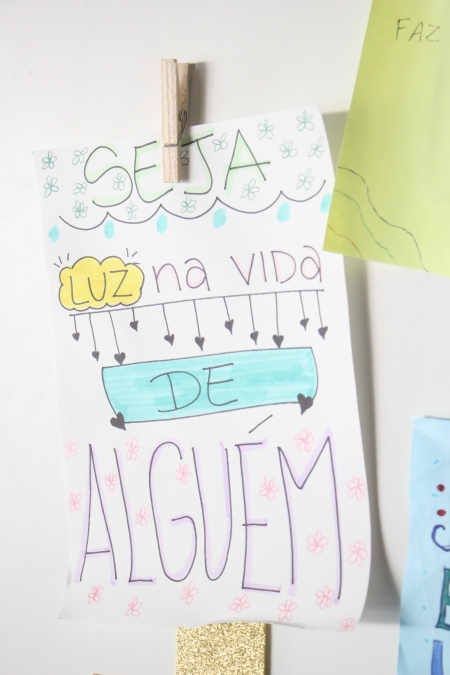 SEJA
LUZ na VIDa
DE
ALGUÉM
FAZ